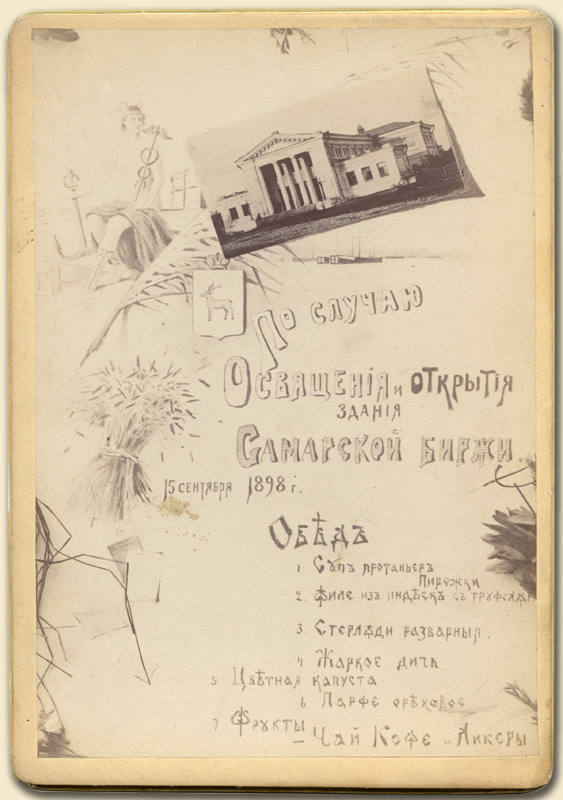 По случаю
Освященія и открытія
зданія
Самарской биржи
15 сентября 1898 г.
Обѣдъ
1. Супъ протаньеръ
Пирожки
2. Филе изъ индѣекъ съ труфелями
3. Стерляди разварныя.
4. Жаркое дичь
5. Цвѣтная капуста
6 Парфе орѣховое
7 Фрукты
— Чай Кофе и Ликеры